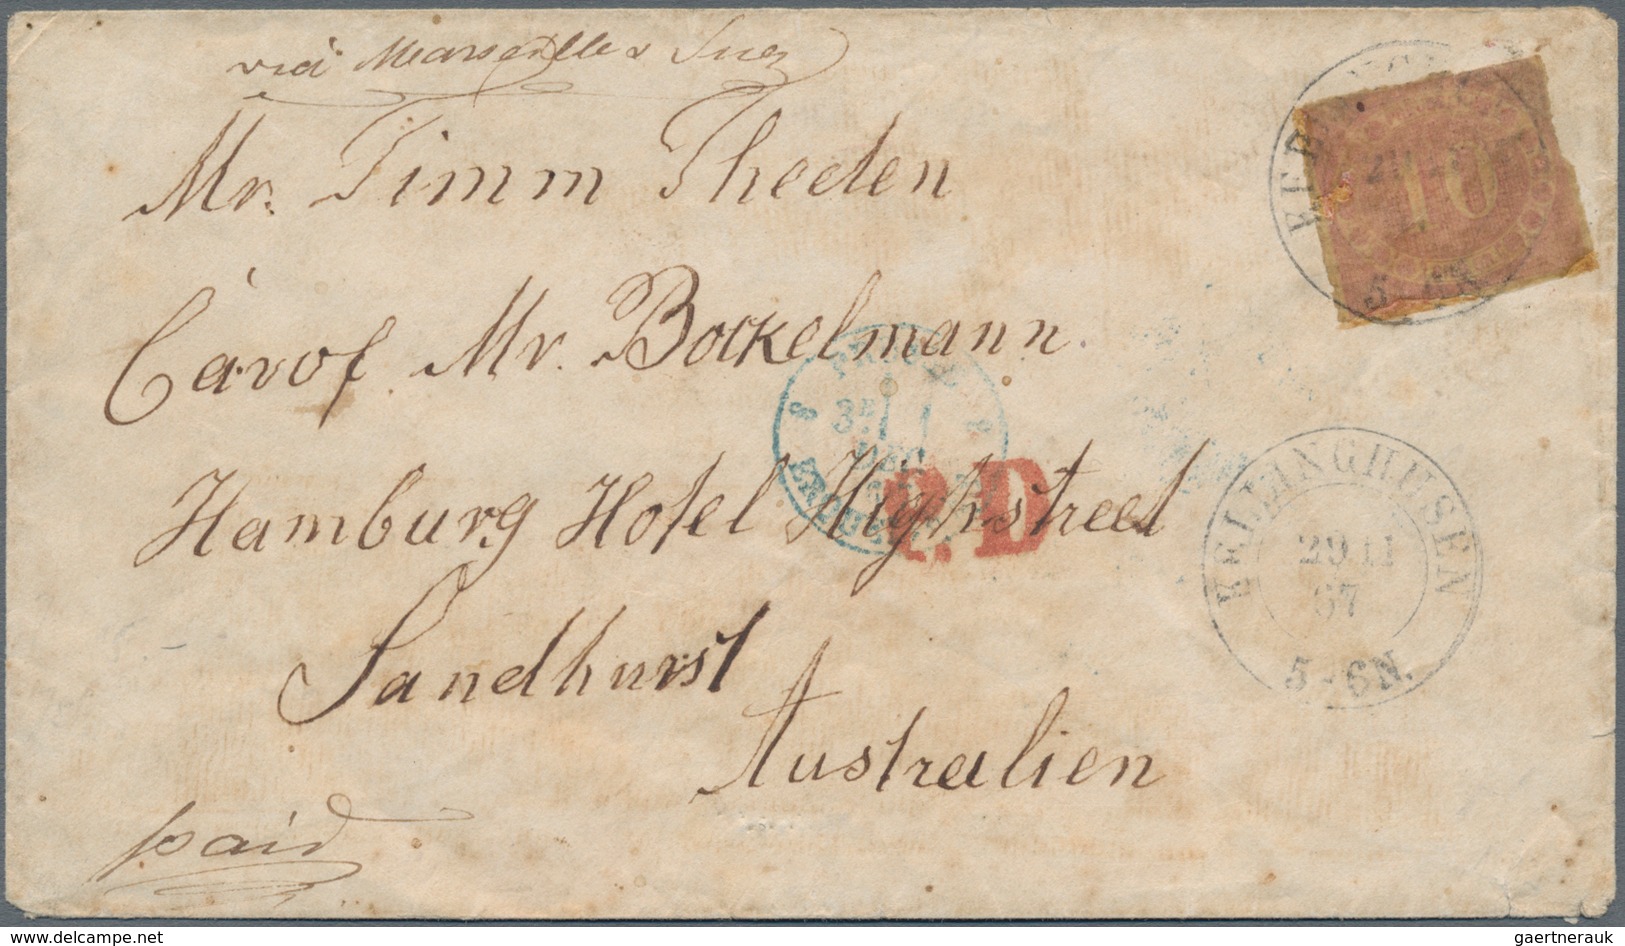 via Marseille & Suez
Mr. Timm Theden
Cárof Mr. Bockelmann
Hamburg Hotel Highstreet
Sandhurst
Australien
paid
10
5
3E 1
DEC
P.D
KELLINGHUSEN
29 11
67
5-6N.
www.delcampe.net
gaertnerauk